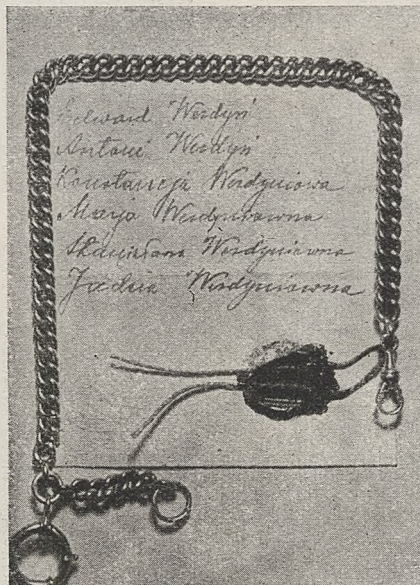 Edward Werdyń
Antoni Werdyń
Konstancja Werdyniowa
Marja Werdyniówna
Stanisława Werdyniówna
Jadzia Werdyniówna